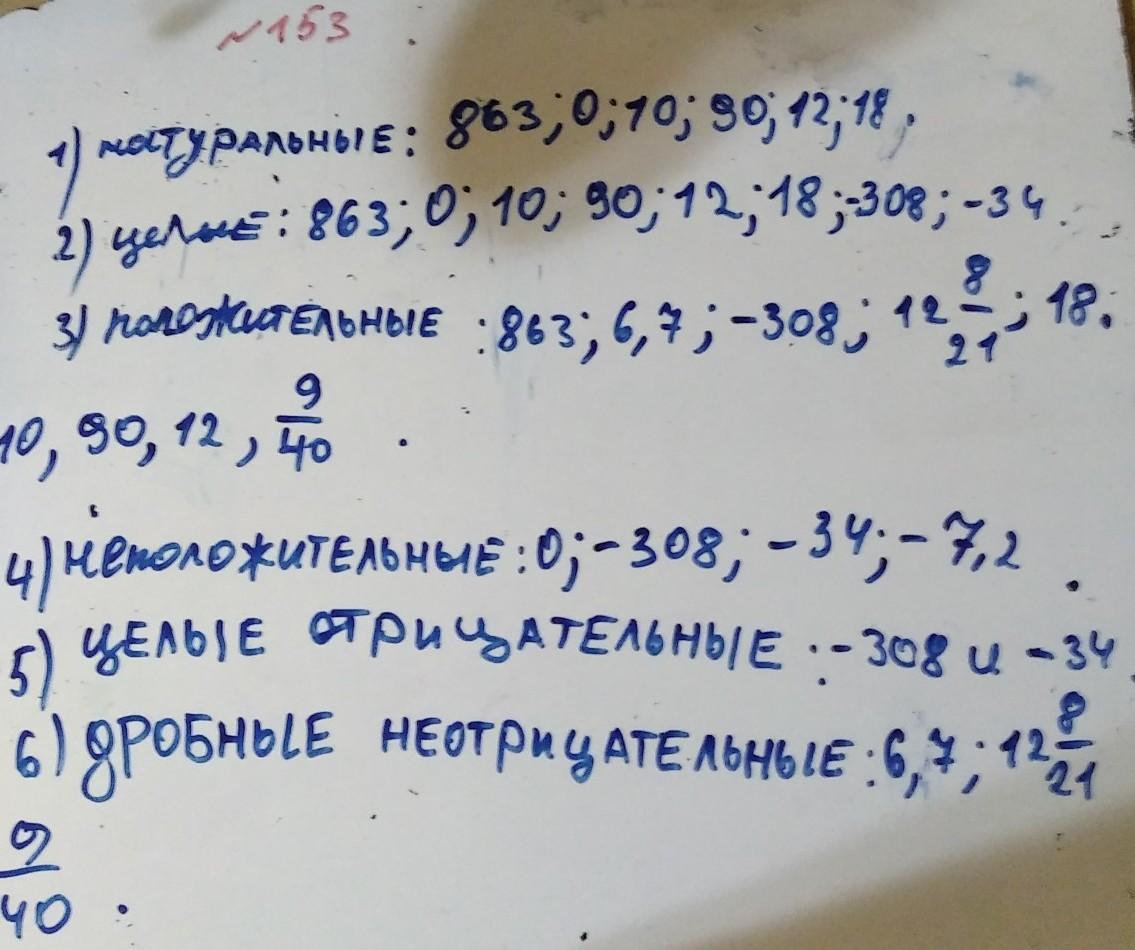 №153
1) натуральные: 863; 0; 10; 90; 12; 18.
2) целые: 863; 0; 10; 90; 12; 18; -308; -34.
3) положительные: 863; 6,7; -308; 12 8/21; 18;
10, 90, 12, 9/40.
4) неположительные: 0; -308; -34; -7,2.
5) целые отрицательные: -308 и -34.
6) дробные неотрицательные: 6,7; 12 8/21
9/40.